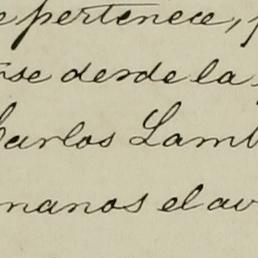 e pertenece, p
rse desde la
Carlos Lamb
manos el av